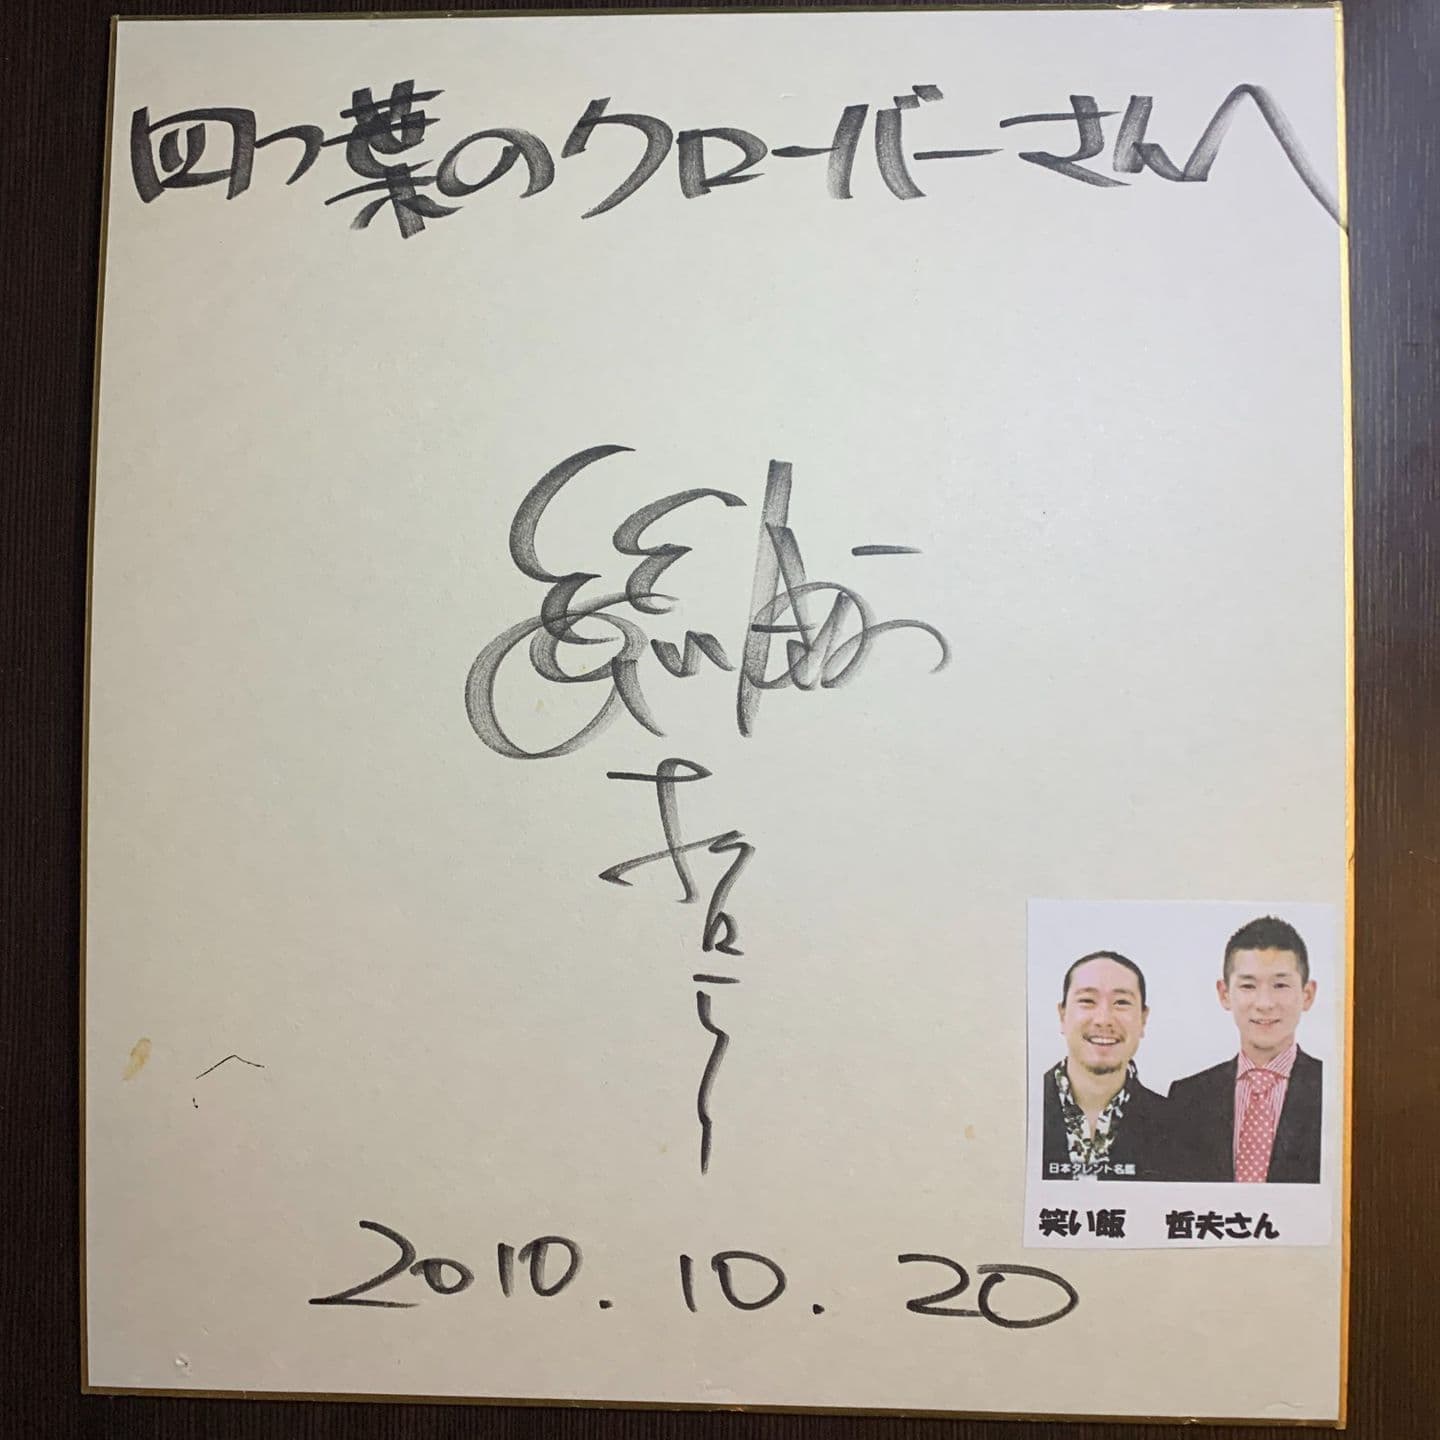 四つ葉のクローバーさんへ
笑い飯
哲夫
2010.10.20
日本タレント名鑑
笑い飯 哲夫さん